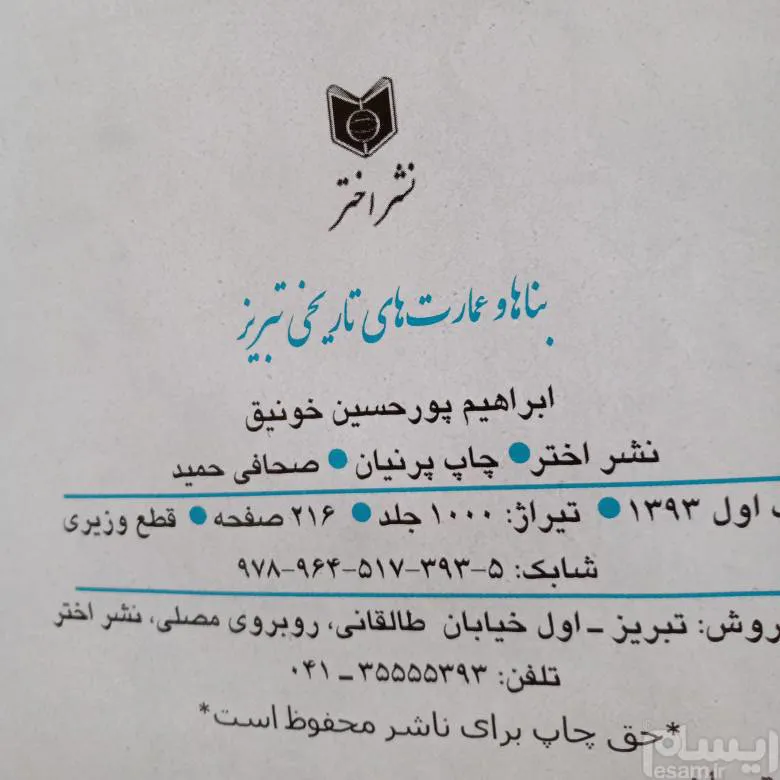 نشر اختر
بناها و عمارت‌های تاریخی تبریز
ابراهیم پورحسین خونیق
نشر اختر ● چاپ پرنیان ● صحافی حمید
اول ۱۳۹۳ ● تیراژ: ۱۰۰۰ جلد ● ۲۱۶ صفحه ● قطع وزیری
شابک: ۵-۳۹۳-۵۱۷-۹۶۴-۹۷۸
روش: تبریز ـ اول خیابان طالقانی، روبروی مصلی، نشر اختر
تلفن: ۳۵۵۵۵۳۹۳ ـ ۰۴۱
*حق چاپ برای ناشر محفوظ است*
ایسام
esam.ir